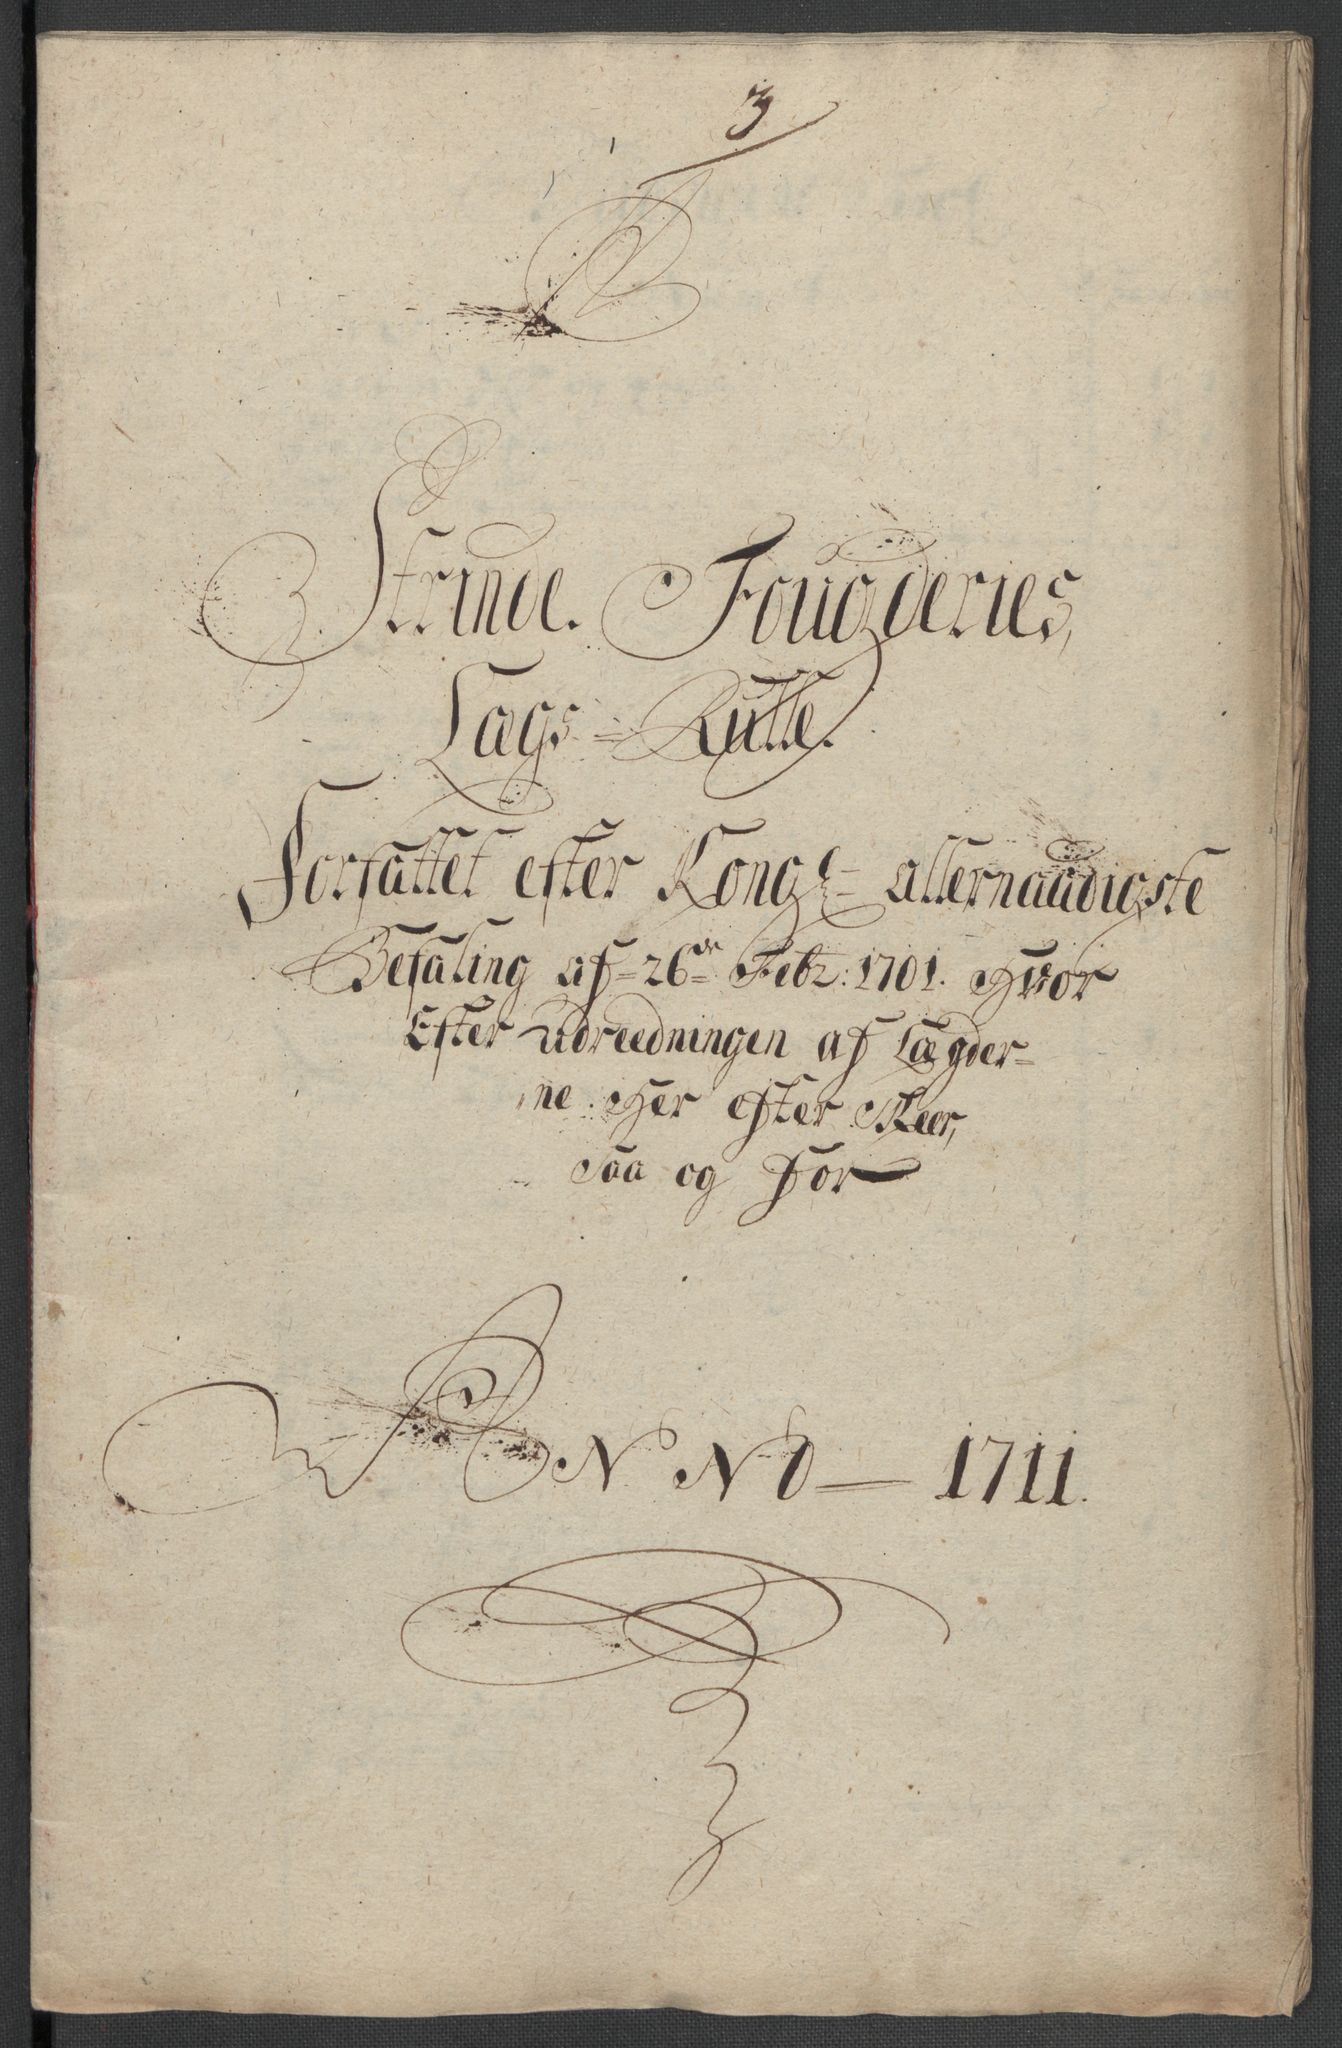 3
Strinde Fougderies,
Lægs = Rulle.
Forfattet efter Kongl: allernaadigste
Befaling af 26de Febr: 1701. Hvor
Efter udreedningen af Lægder=
ne Her efter Skeer,
saa og for
ANNO — 1711.